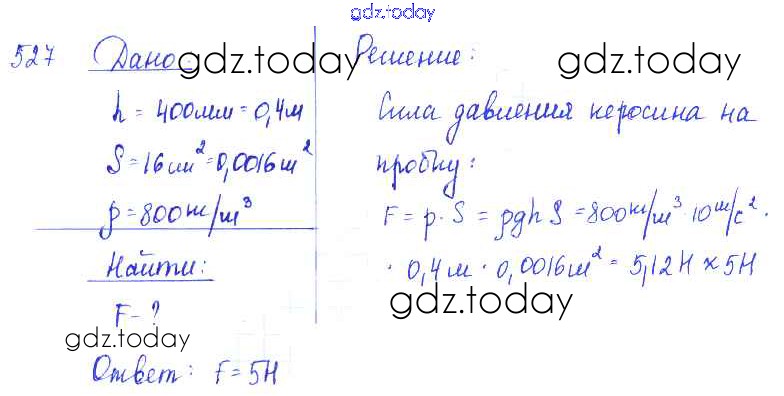 gdz.today
527 Дано: Решение:
gdz.today gdz.today
h = 400мм = 0,4м
S = 16см² = 0,0016м²
ρ = 800кг/м³
Найти:
F - ?
gdz.today
Ответ: F = 5Н
Сила давления керосина на
пробку:
F = p · S = ρghS = 800кг/м³ · 10м/с² ·
· 0,4м · 0,0016м² = 5,12Н ≈ 5Н
gdz.today